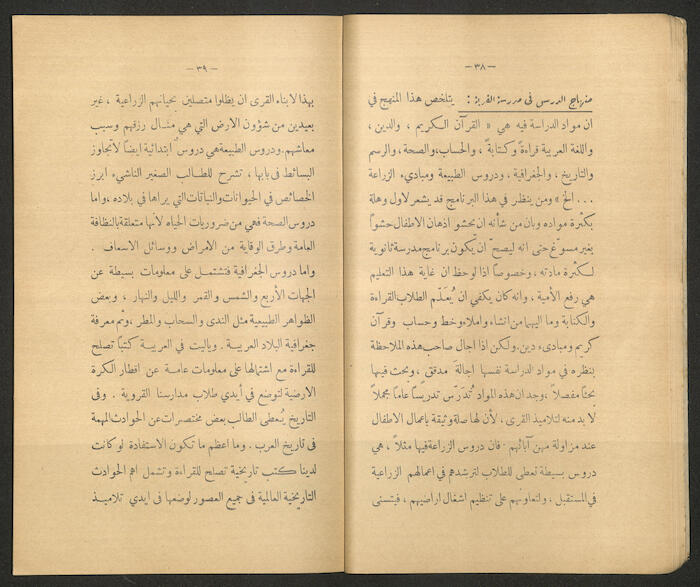 — ٣٨ —
منهاج الدرس فى مدرسة القرية : يتلخص هذا المنهج في
ان مواد الدراسة فيه هي « القرآن الكريم ، والدين ،
واللغة العربية قراءةً وكتابةً ، والحساب ، والصحة ، والرسم
والتاريخ ، والجغرافية ، ودروس الطبيعة ومبادىء الزراعة
... الخ » ومن ينظر في هذا البرنامج قد يشعر لاول وهلة
بكثرة مواده وبان من شأنه ان يحشو اذهان الاطفال حشواً
بغير مسوّغ حتى انه ليصحّ ان يكون برنامج مدرسة ثانوية
لكثرة مادته ، وخصوصاً اذا لوحظ ان غاية هذا التعليم
هي رفع الأمية ، وانه كان يكفي ان يُعلَّم الطلاب القراءة
والكتابة وما اليهما من انشاء واملاء وخط وحساب وقرآن
كريم ومبادىء دين. ولكن اذا اجال صاحب هذه الملاحظة
بنظره في مواد الدراسة نفسها اجالةَ مدقق ، وبحث فيها
بحثاً مفصلاً ، وجد ان هذه المواد تُدَرّس تدريساً عاماً مجملاً
لا بد منه لتلاميذ القرى ، لأن لها صلة وثيقة باعمال الاطفال
عند مزاولة مهن آبائهم . فان دروس الزراعة فيها مثلاً ، هي
دروس بسيطة تعطى للطلاب لترشدهم في اعمالهم الزراعية
في المستقبل ، ولتعاونهم على تنظيم اشغال اراضيهم ، فيتسنى
— ٣٩ —
بهذا لابناء القرى ان يظلوا متصلين بحياتهم الزراعية ، غير
بعيدين من شؤون الارض التي هي مثال رزقهم وسبب
معاشهم. ودروس الطبيعة هي دروس ابتدائية ايضاً لا تجاوز
البسائط في بابها ، تشرح للطالب الصغير الناشىء ابرز
الخصائص في الحيوانات والنباتات التي يراها في بلاده ، واما
دروس الصحة فهي من ضروريات الحياه لأنها متعلقة بالنظافة
العامة وطرق الوقاية من الامراض ووسائل الاسعاف .
واما دروس الجغرافية فتشتمل على معلومات بسيطة عن
الجهات الأربع والشمس والقمر والليل والنهار ، وبعض
الظواهر الطبيعية مثل الندى والسحاب والمطر ، وثم معرفة
جغرافية البلاد العربية . وياليت في العربية كتباً تصلح
للقراءة مع اشتمالها على معلومات عامة عن اقطار الكرة
الارضية لتوضع في أيدي طلاب مدارسنا القروية . وفى
التاريخ يُعطى الطالب بعض مختصرات عن الحوادث المهمة
فى تاريخ العرب . وما اعظم ما تكون الاستفادة لو كانت
لدينا كتب تاريخية تصلح للقراءة وتشمل اهم الحوادث
التاريخية العالمية فى جميع العصور لوضعها فى ايدي تلاميذ